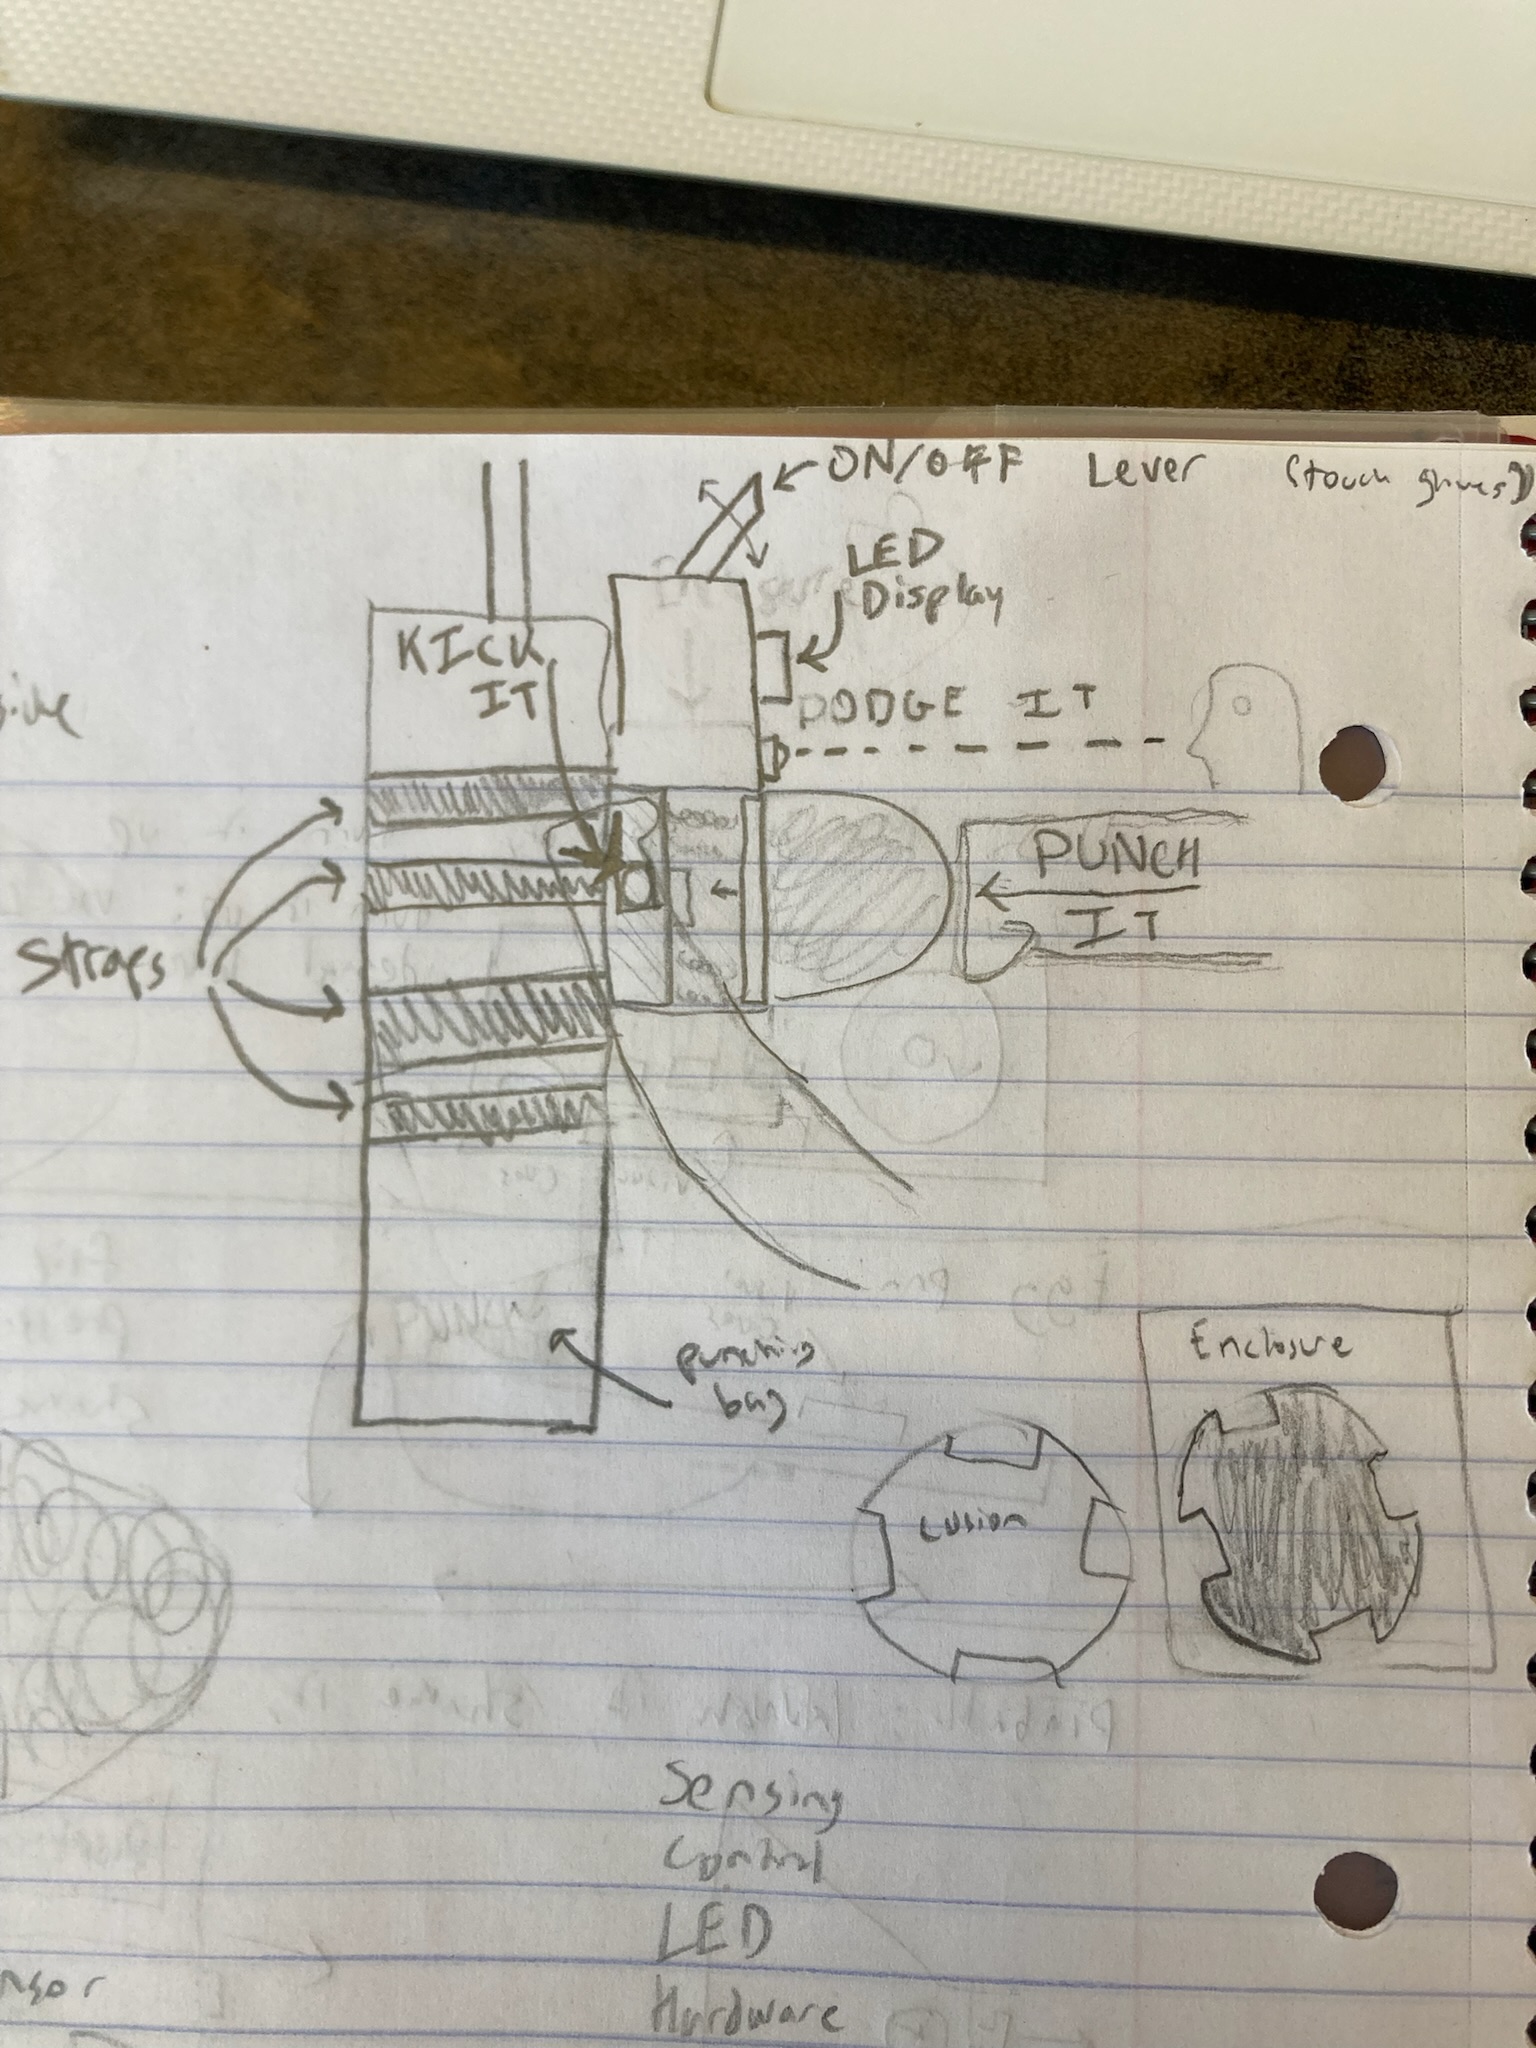 ON/OFF Lever (touch gloves)
LED
Display
KICK
IT
DODGE IT
PUNCH
IT
Straps
punching
bag
Enclosure
Cusion
Sensing
Control
LED
Hardware